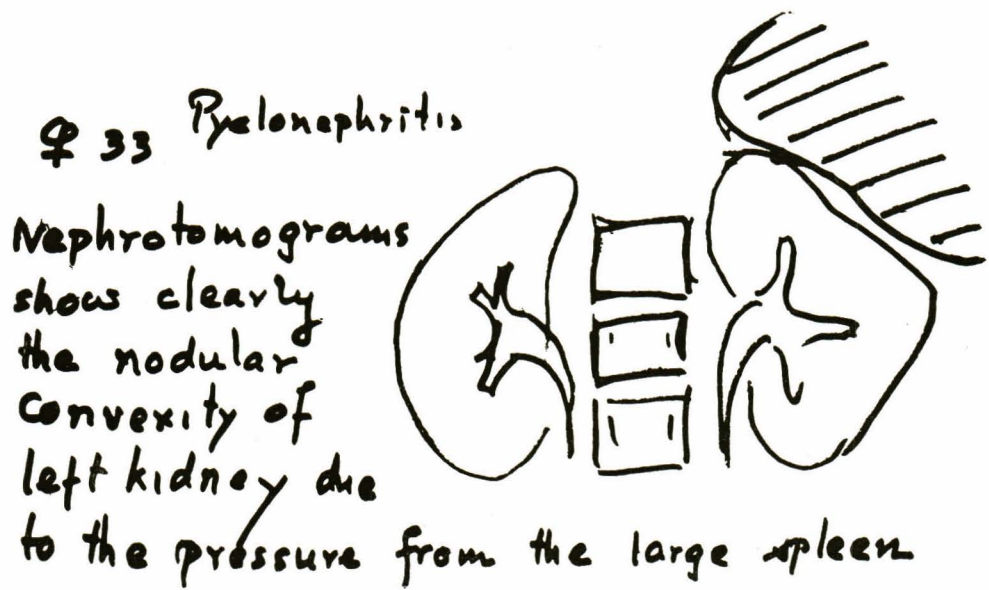 ♀ 33 Pyelonephritis
Nephrotomograms
show clearly
the nodular
convexity of
left kidney due
to the pressure from the large spleen